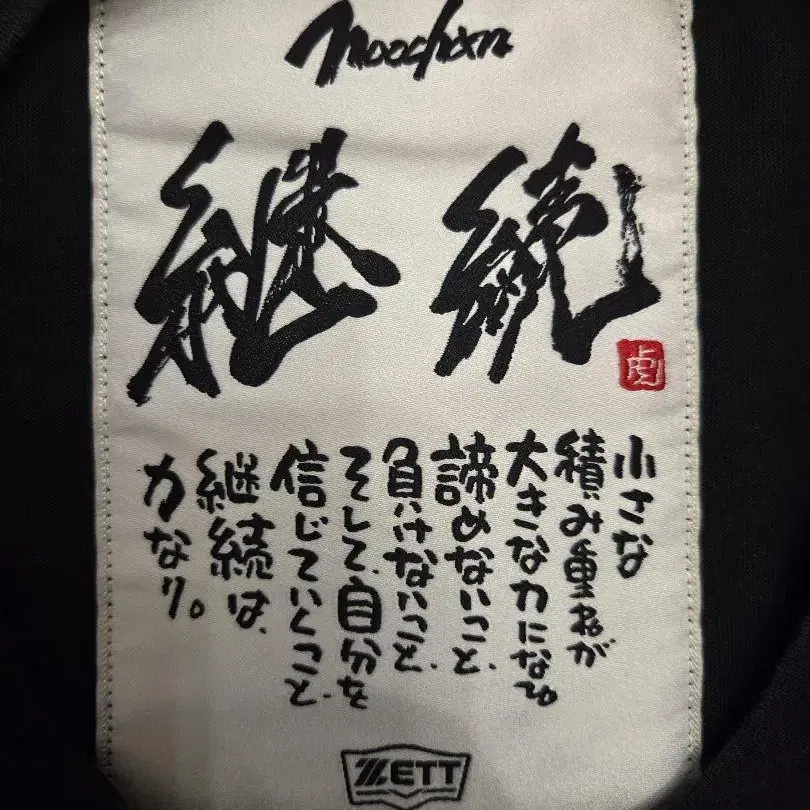 Moochan
継続
虎
小さな
積み重ねが
大きな力になる。
諦めないこと、
負けないこと、
そして、自分を
信じていくこと、
継続は、
力なり。
ZETT